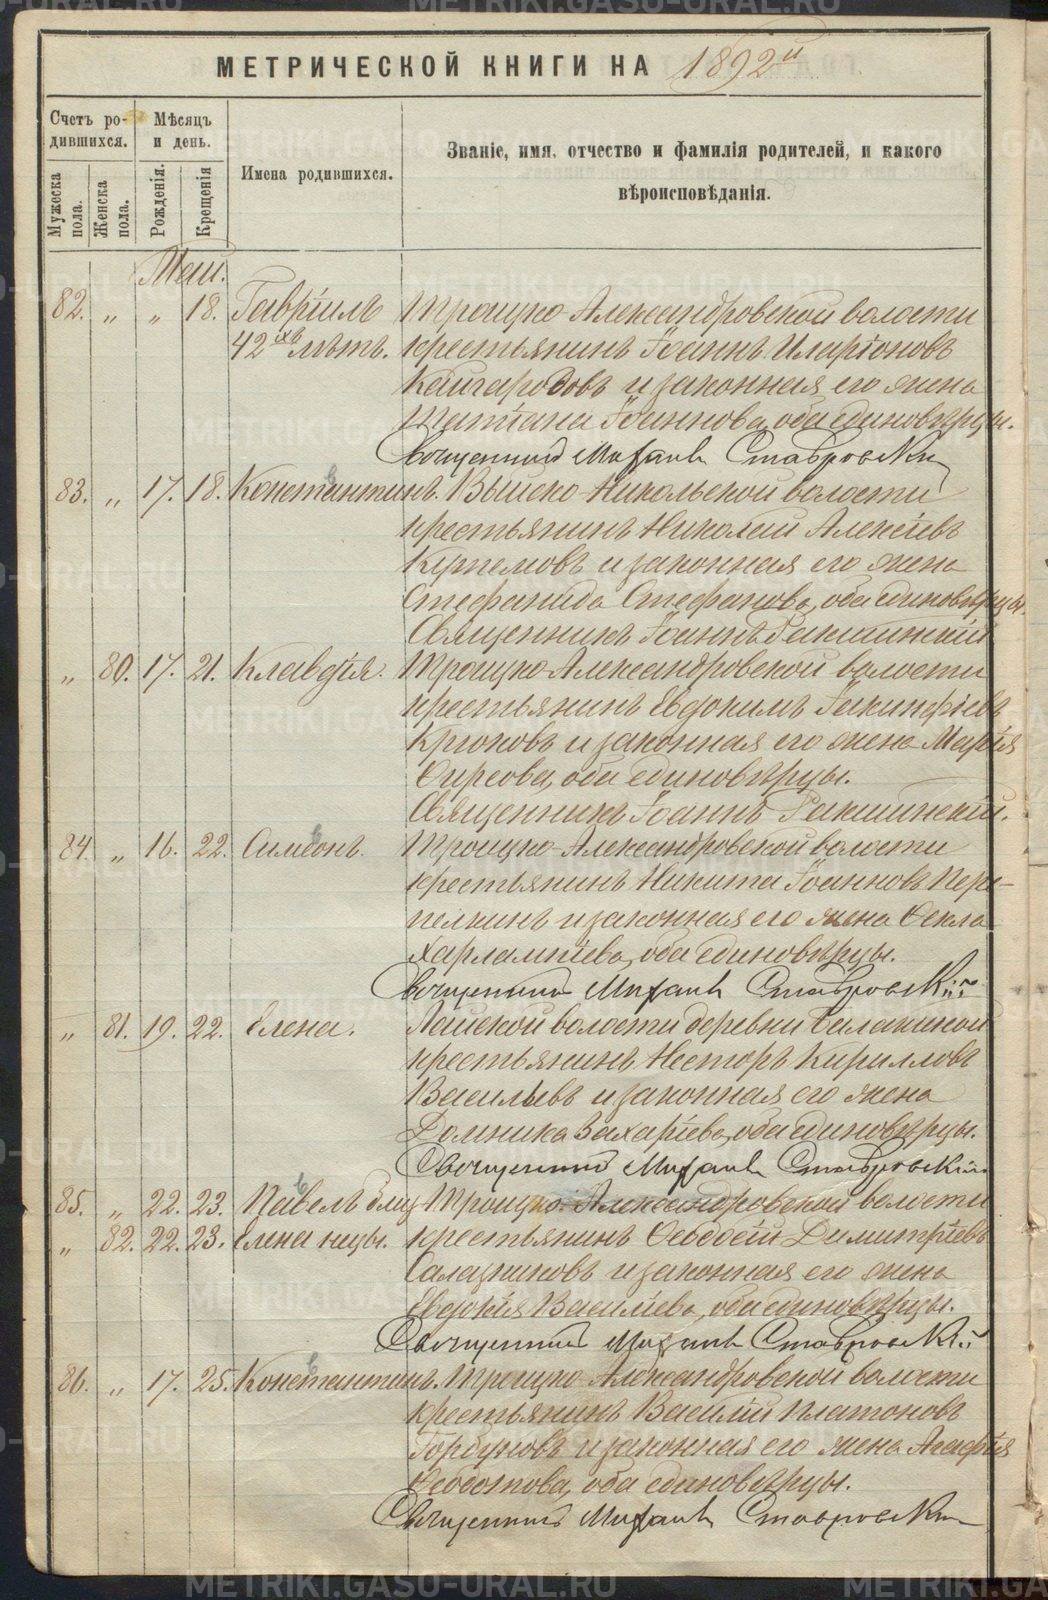 МЕТРИЧЕСКОЙ КНИГИ НА 1892й
Счетъ ро-
дившихся.
Мѣсяцъ
и день.
Мужеска
пола.
Женска
пола.
Рожденія.
Крещенія
Имена родившихся.
Званіе, имя, отчество и фамилія родителей, и какого
вѣроисповѣданія.
Май.
82. „ „ 18. Гавріилъ Троицко-Александровской волости
42ихъ лѣтъ. крестьянинъ Іоаннъ Иларіоновъ
Кайгародовъ и законная его жена
Татіана Іоаннова, оба единовѣрцы.
Священникъ Михаилъ Ставровскій
83. „ 17. 18. Константинъ. Выйско-Никольской волости
крестьянинъ Николай Алексіевъ
и законная его жена
Стефанида Стефанова, оба единовѣрцы.
Священникъ Іоаннъ
„ 80. 17. 21. Клавдія. Троицко-Александровской волости
крестьянинъ Евдокимъ Іакинфіевъ
Крюковъ и законная его жена Марія
Фирсова, оба единовѣрцы.
Священникъ Іоаннъ
84. „ 16. 22. Симеонъ. Троицко-Александровской волости
крестьянинъ Никита Іоанновъ Пере-
пелкинъ и законная его жена Фекла
Харлампіева, оба единовѣрцы.
Священникъ Михаилъ Ставровскій
„ 81. 19. 22. Елена. Лайской волости деревни Балакиной
крестьянинъ Несторъ Кирилловъ
Васильевъ и законная его жена
Домника Захаріева, оба единовѣрцы.
Священникъ Михаилъ Ставровскій
85. „ 22. 23. Павелъ близ Троицко-Александровской волости
„ 82. 22. 23. Елена нецы. крестьянинъ Феодосій Димитріевъ
Салазниковъ и законная его жена
Евдокія Василіева, оба единовѣрцы.
Священникъ Михаилъ Ставровскій
86. „ 17. 25. Константинъ. Троицко-Александровской волости
крестьянинъ Василій Платоновъ
Горбуновъ и законная его жена Агафія
Феодотова, оба единовѣрцы.
Священникъ Михаилъ Ставровскій
METRIKI.GASO-URAL.RU